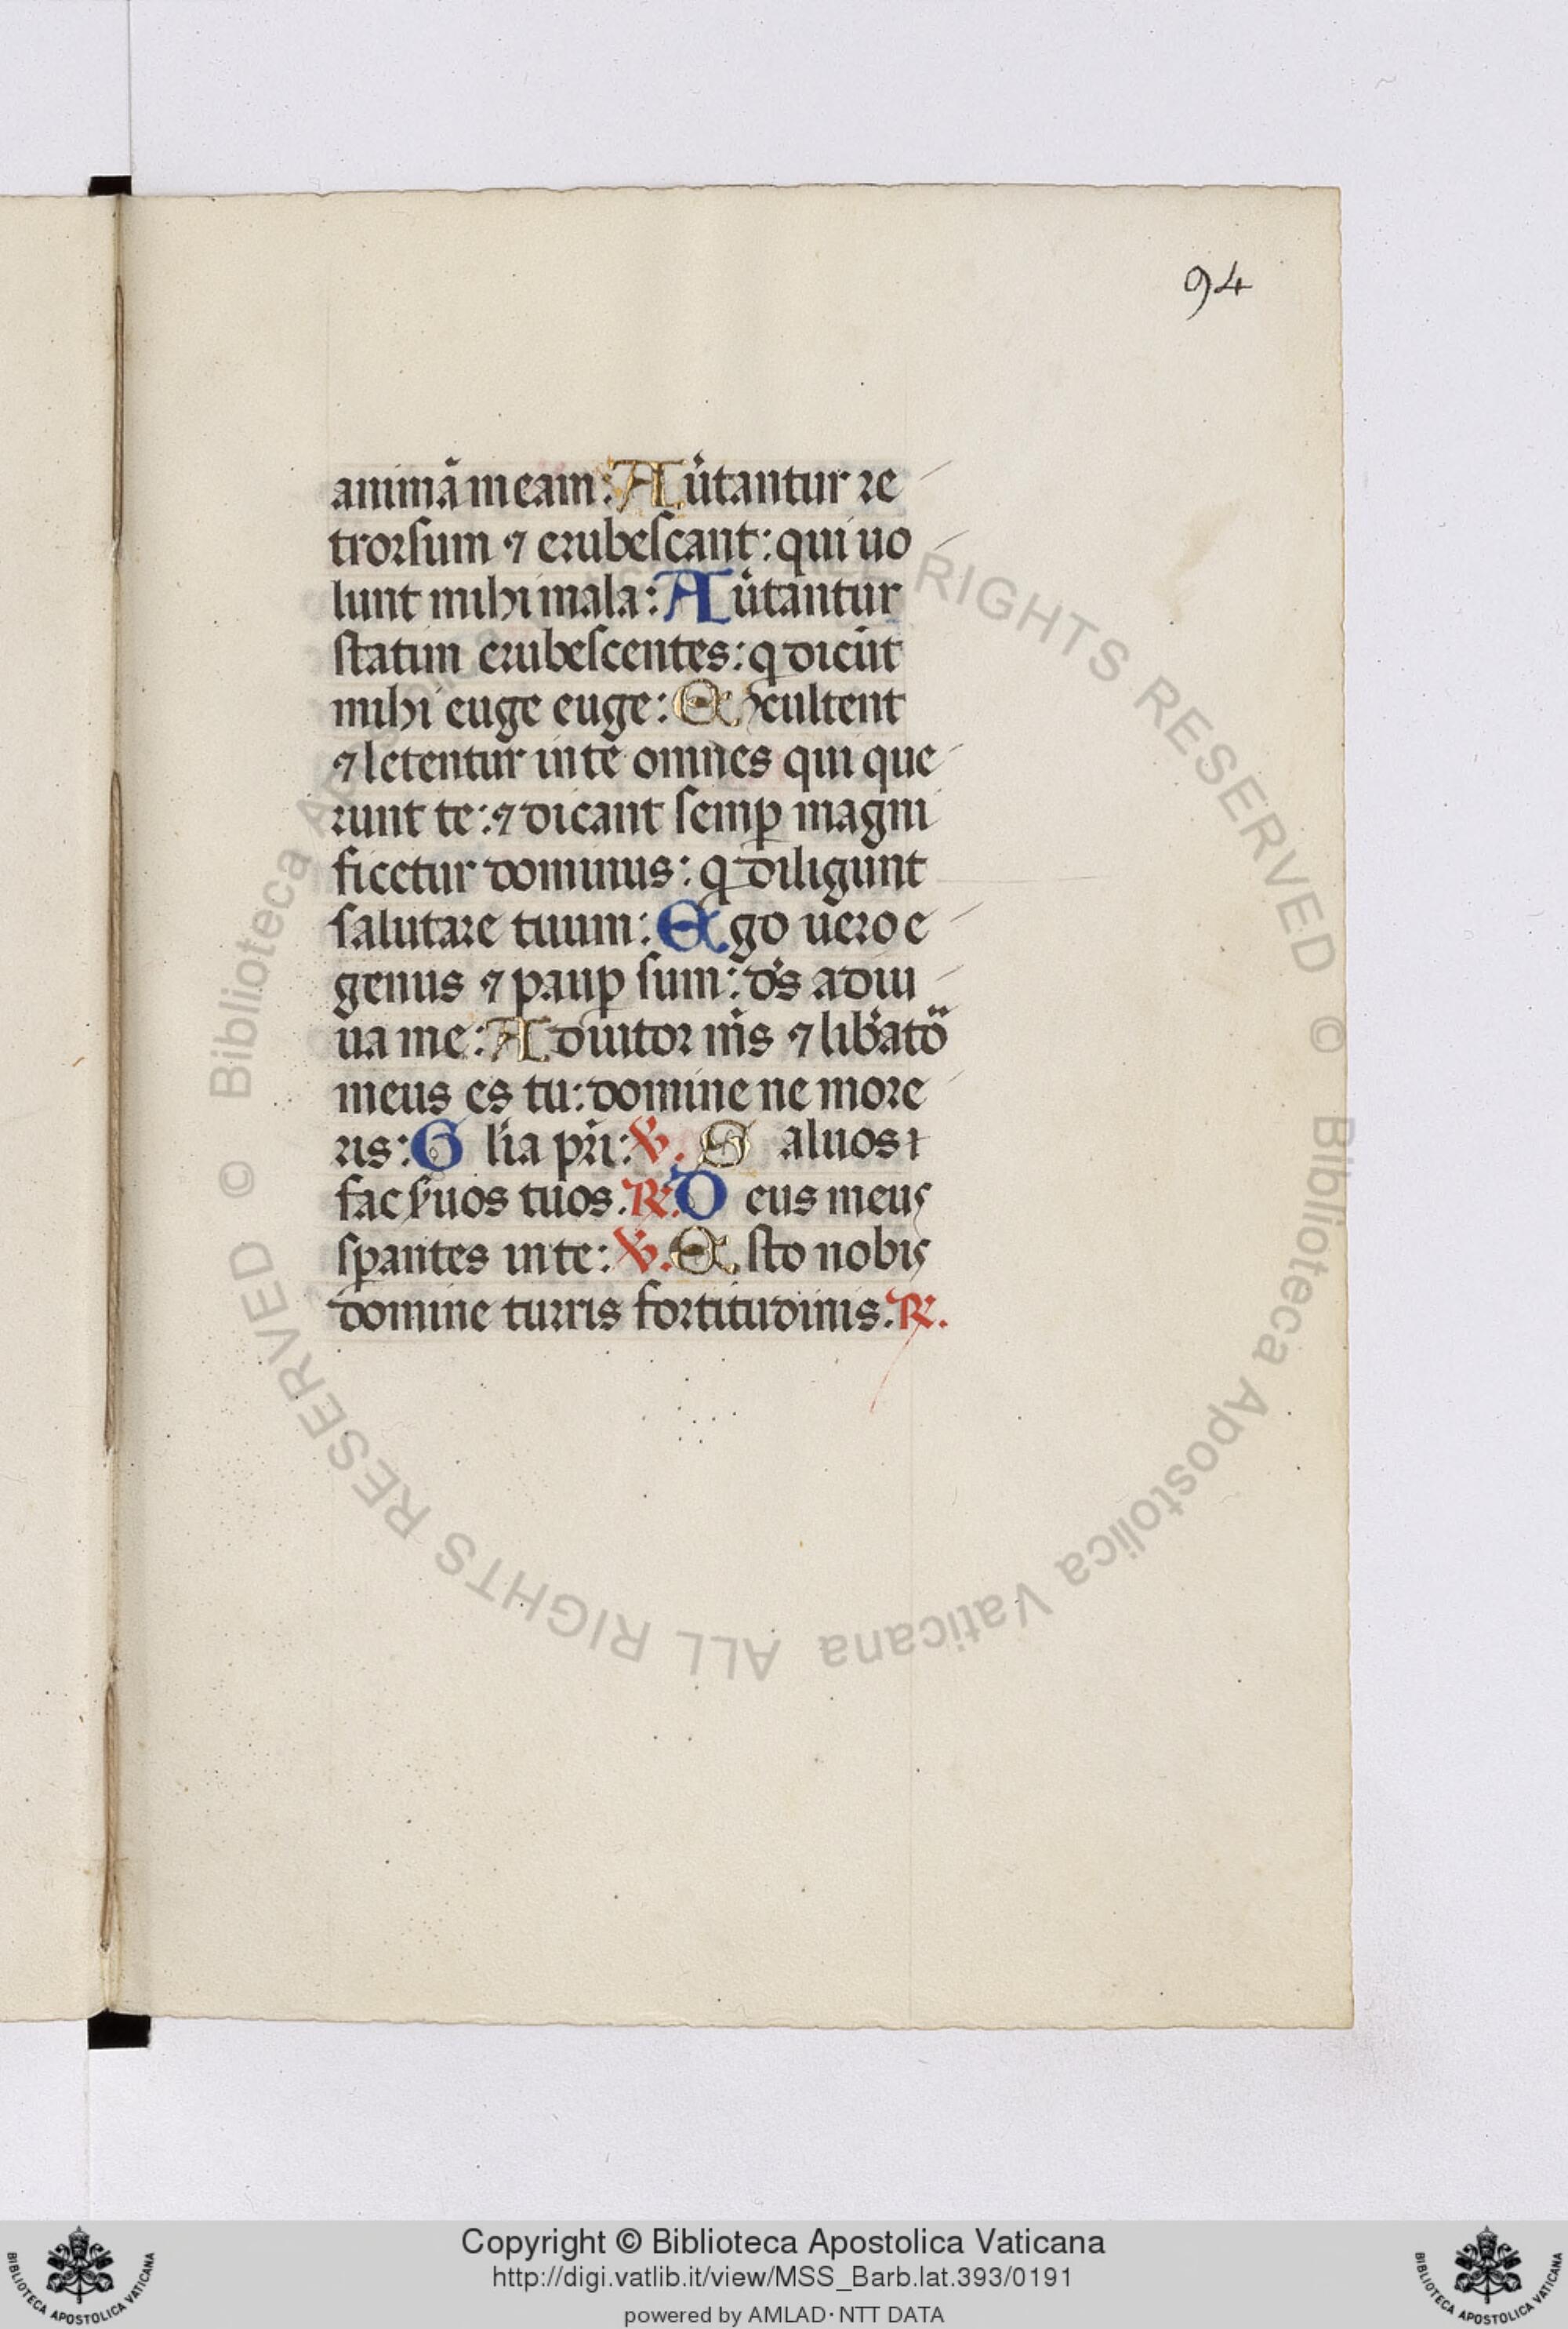 94
animā meam: Au᷑tantur re
trorsum ⁊ erubescant: qui uo
lunt mihi mala: Au᷑tantur
statim erubescentes: q dicūt
mihi euge euge: Exultent
⁊ letentur in te omnes qui que
runt te: ⁊ dicant semꝑ magni
ficetur dominus: q diligunt
salutare tuum: Ego uero e
genus ⁊ pauꝑ sum: ds̄ adiu
ua me: Adiutor m̄s ⁊ lib᷑ato᷑
meus es tu: domine ne more
ris: Glīa pr̄i: ℣. Saluos
fac s᷑uos tuos. ℟. Deus meus
sꝑantes in te: ℣. Esto nobis
domine turris fortitudinis. ℟.
© Biblioteca Apostolica Vaticana ALL RIGHTS RESERVED
© Biblioteca Apostolica Vaticana ALL RIGHTS RESERVED
Copyright © Biblioteca Apostolica Vaticana
http://digi.vatlib.it/view/MSS_Barb.lat.393/0191
powered by AMLAD·NTT DATA
BIBLIOTECA APOSTOLICA VATICANA
BIBLIOTECA APOSTOLICA VATICANA